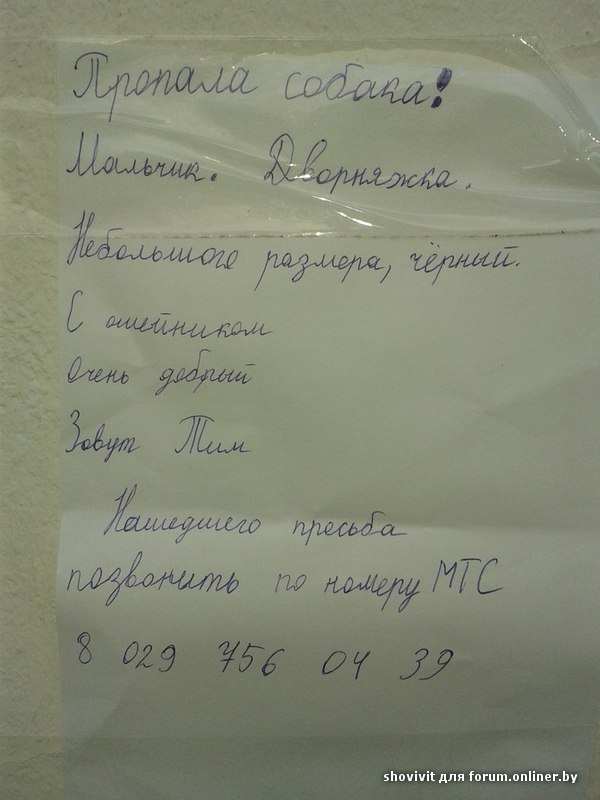 Пропала собака!
Мальчик. Дворняжка.
Небольшого размера, чёрный.
С ошейником
очень добрый
Зовут Тим
Нашедшего пресьба
позвонить по номеру МТС
8 029 756 04 39
shovivit для forum.onliner.by